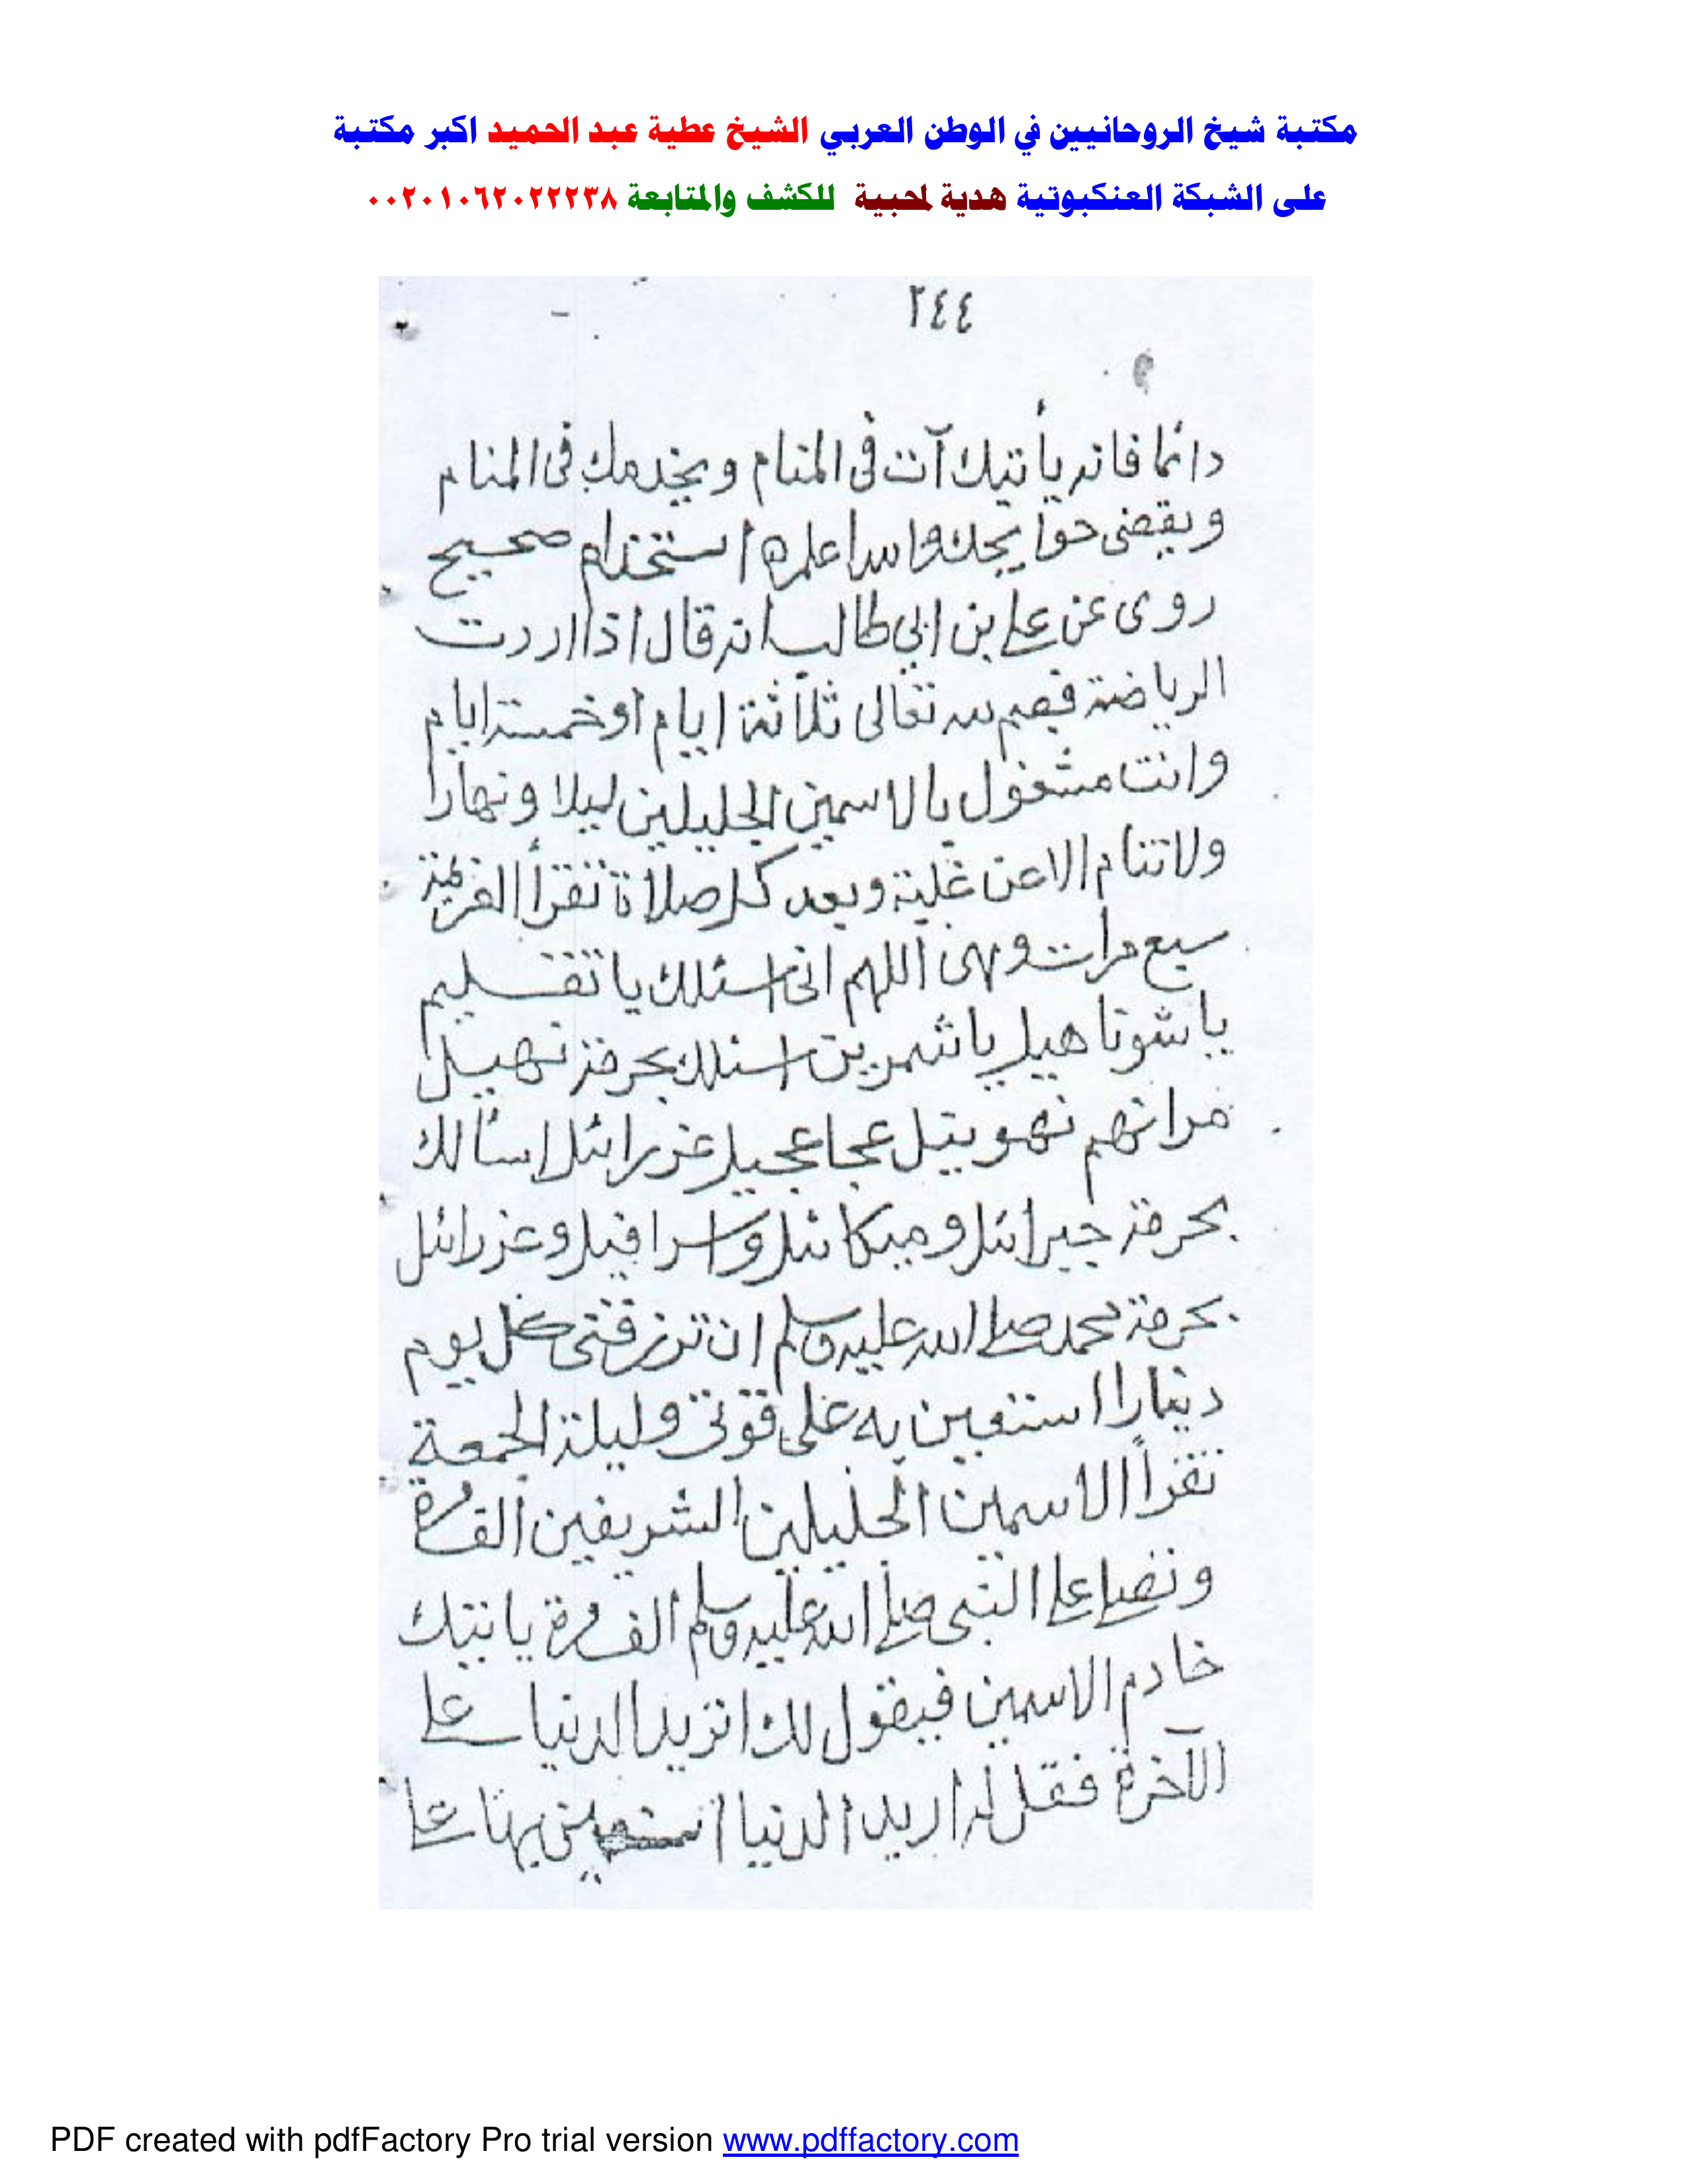 مكتبة شيخ الروحانيين في الوطن العربي الشيخ عطية عبد الحميد اكبر مكتبة
على الشبكة العنكبوتية هدية لمحبية للكشف والمتابعة ٠٠٢٠١٠٦٢٠٢٢٢٣٨
٢٤٤
دائما فانه يأتيك آت فى المنام ويخدمك فى المنام
ويقضى حوايجك والله اعلم ه استخدام صحيح
روى عن على بن ابي طالب انه قال اذا اردت
الرياضة فصم لله تعالى ثلاثة ايام أو خمسة ايام
وانت مشغول بالاسمين الجليلين ليلا ونهارا
ولا تنام الا عن غلبة وبعد كل صلاة تقرأ العزيمة
سبع مرات وهى اللهم انى اسئلك يا تقسليم
يا شوتاهيل يا شمرين اسئلك بحرمة نهيل
مراتهم نهويتل عجا عجيل عزرائل اسألك
بحرمة جبرائل وميكائل واسرافيل وعزرائل
بحرمة محمد صلى الله عليه وسلم ان ترزقنى كل يوم
دينارا استعين به على قوتى وليلة الجمعة
تقرأ الاسمين الجليلين الشريفين الف مرة
وتصلى على النبى صلى الله عليه وسلم الف مرة ياتيك
خادم الاسمين فيقول لك اتريد الدنيا على
الآخرة فقل له اريد الدنيا استعين بها على
PDF created with pdfFactory Pro trial version www.pdffactory.com